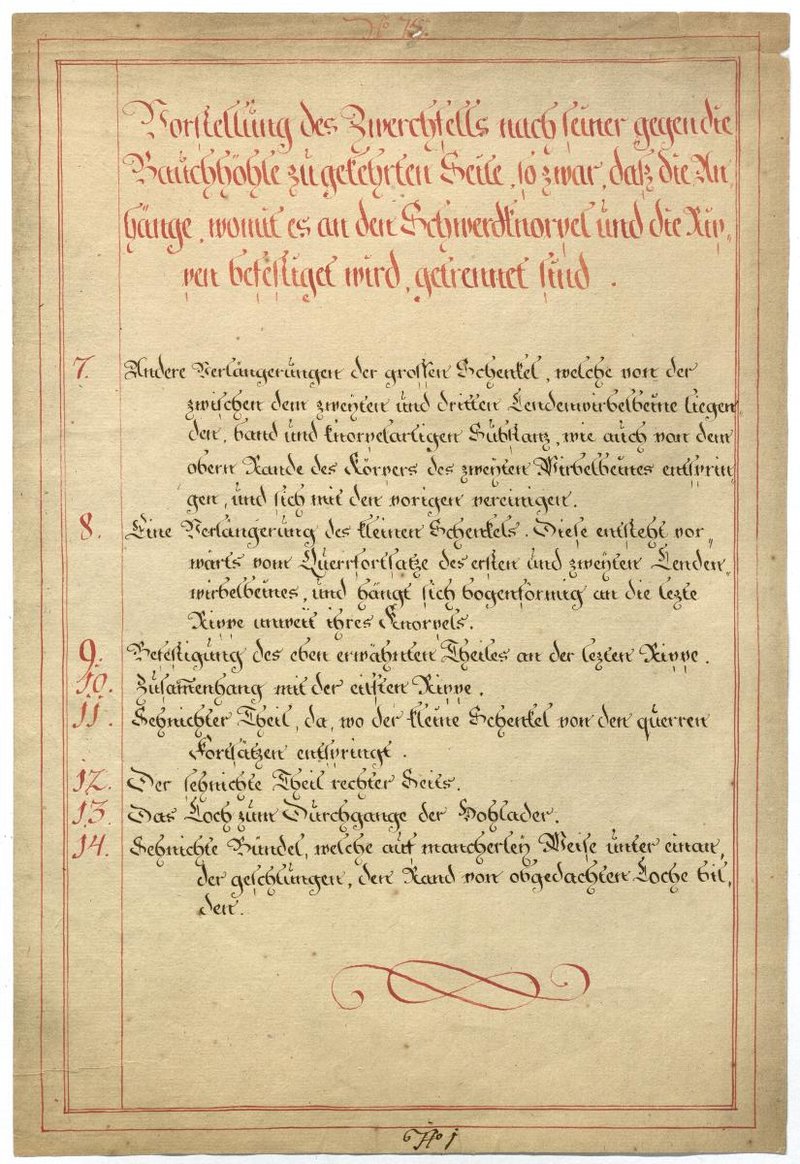 No 78.
Vorstellung des Zwerchfells nach seiner gegen die
Bauchhöhle zu gekehrten Seite, so zwar, daß die An,
hänge, womit es an den Schwerdknorpel und die Rip,,
pen befestiget wird, getrennet sind.
7. Andere Verlängerungen der grossen Schenkel, welche von der
zwischen dem zweyten und dritten Lendenwirbelbeine liegen
den, band und knorpelartigen Substanz, wie auch von dem
obern Rande des Körpers des zweyten Wirbelbeines entsprin
gen, und sich mit den vorigen vereinigen.
8. Eine Verlängerung des kleinen Schenkels. Diese entsteht vor,,
wärts vom Querrfortsatze des ersten und zweyten Lenden,
wirbelbeines, und hängt sich bogenförmig an die lezte
Rippe unweit ihres Knorpels.
9. Befestigung des eben erwähnten Theiles an der lezten Rippe.
10. Zusam̅enhang mit der eilften Rippe.
11. Sehnichter Theil, da, wo der kleine Schenkel von den querren
Fortsätzen entspringt.
12. Der sehnichte Theil rechter Seits.
13. Das Loch zum Durchgange der Hohlader.
14. Sehnichte Bündel, welche auf mancherley Weise unter einan,
der geschlungen, den Rand von obgedachten Loche bil,
den.